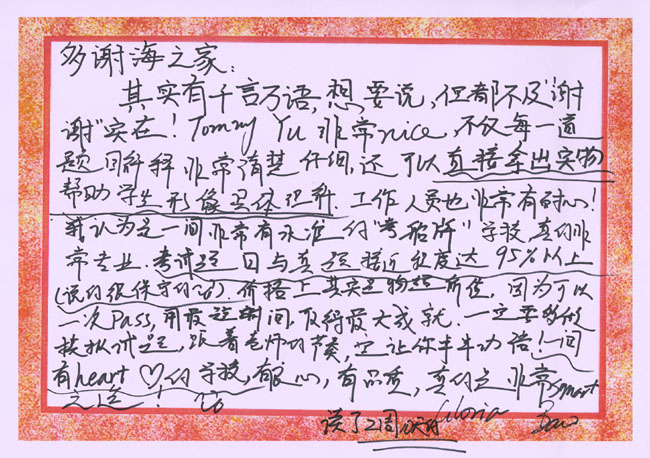 多谢海之家:
其实有千言万语,想要说,但都不及"谢
谢"实在!Tommy Yu 非常nice,不仅每一道
题目解释非常清楚仔细,还可以直接拿出实物
帮助学生形像具体理解.工作人员也非常有耐心!
我认为是一间非常有水准的"考船牌"学校,真的非
常专业.考试题目与真题接近程度达95%以上
(说的很保守的了).价格上其实是物超所值,因为可以
一次Pass,用最短时间,取得最大成就.一定要多做
模拟试题,跟着老师的节奏,它让你事半功倍!一间
有heart♡的学校,有良心,有品质,真的是非常smart
之选!
读了2周 Gloria